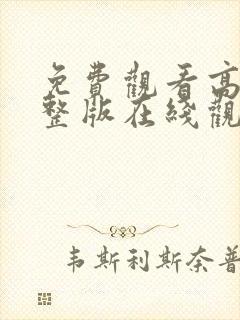 免費觀看高
整版在綫觀
韦斯利斯奈普